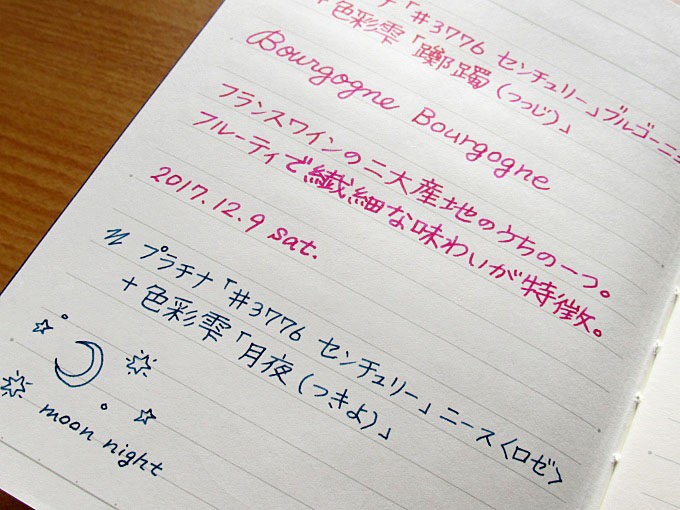 チナ「#3776 センチュリー」ブルゴーニュ
+色彩雫「躑躅(つつじ)」
Bourgogne Bourgogne
フランスワインの二大産地のうちの一つ。
フルーティで繊細な味わいが特徴。
2017.12.9 sat.
プラチナ「#3776 センチュリー」ニース〈ロゼ〉
+色彩雫「月夜(つきよ)」
moon night